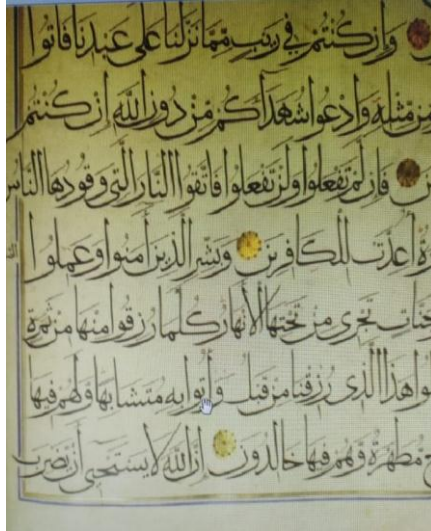 وَإِن كُنتُمْ فِي رَيْبٍ مِمَّا نَزَّلْنَا عَلَى عَبْدِنَا فَأْتُوا
مِن مِّثْلِهِ وَادْعُوا شُهَدَاءَكُم مِّن دُونِ اللَّهِ إِنْ كُنتُمْ
فَإِن لَمْ تَفْعَلُوا وَلَن تَفْعَلُوا فَاتَّقُوا النَّارَ الَّتِي وَقُودُهَا النَّاسُ
أُعِدَّتْ لِلْكَافِرِينَ وَبَشِّرِ الَّذِينَ آمَنُوا وَعَمِلُوا
جَنَّاتٍ تَجْرِي مِنْ تَحْتِهَا الْأَنْهَارُ كُلَّمَا رُزِقُوا مِنْهَا مِنْ ثَمَرَةٍ
هَذَا الَّذِي رُزِقْنَا مِنْ قَبْلُ وَأُتُوا بِهِ مُتَشَابِهًا وَلَهُمْ فِيهَا
مُطَهَّرَةٌ وَهُمْ فِيهَا خَالِدُونَ إِنَّ اللَّهَ لَا يَسْتَحْيِي أَنْ يَضْرِبَ